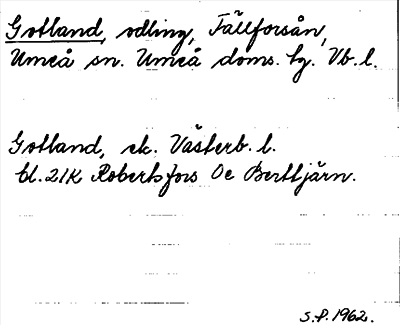 Gotland, odling, Tällforsån,
Umeå sn. Umeå doms. tg. Vb. l.
Gotland, ek. Västerb. l.
bl. 21K Robertsfors Oe Berttjärn.
S.P. 1962.